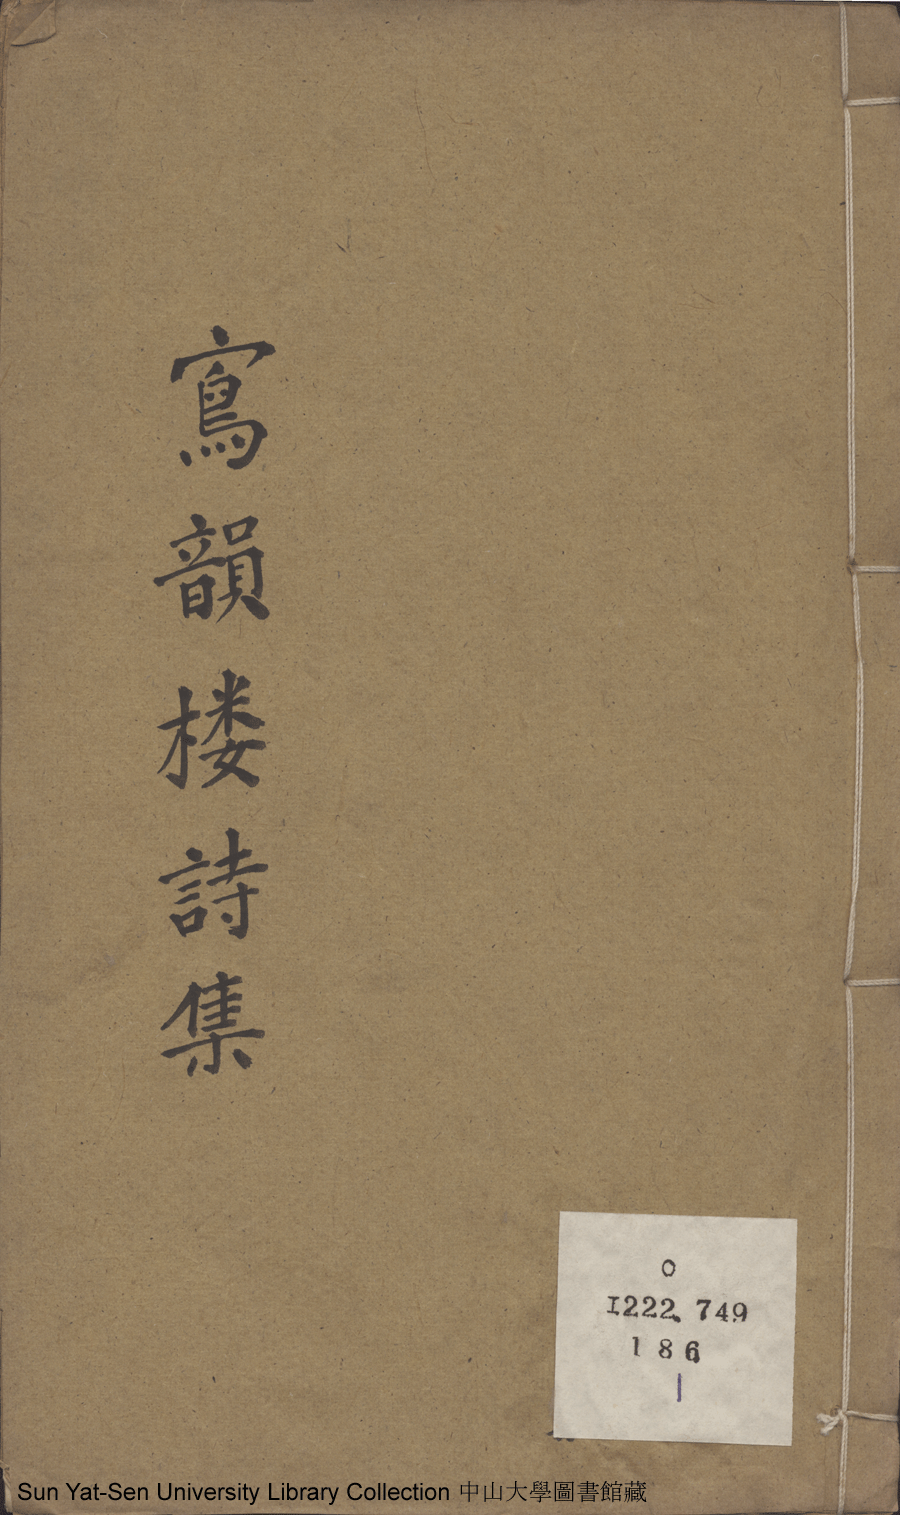 寫韻楼詩集
O
I222.749
186
|
Sun Yat-Sen University Library Collection 中山大學圖書館藏